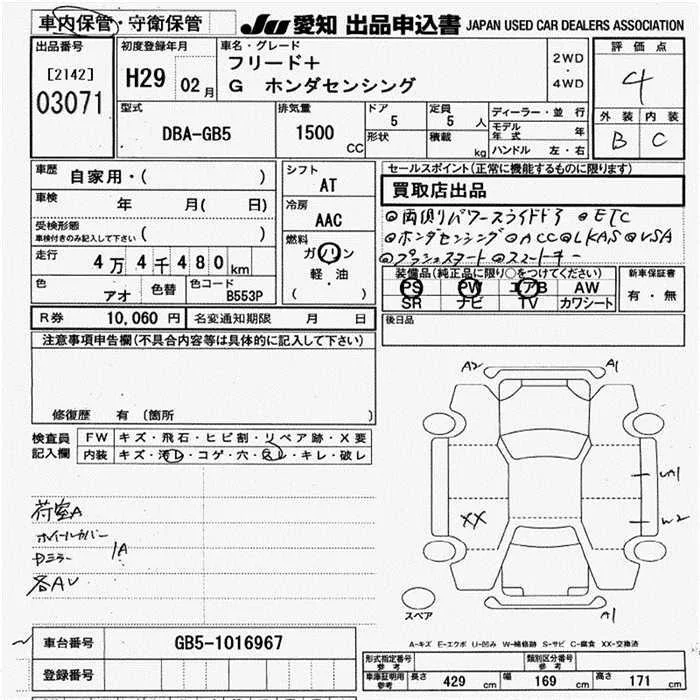 車内保管・守衛保管 JU 愛知 出品申込書 JAPAN USED CAR DEALERS ASSOCIATION
出品番号 初度登録年月 車名・グレード 評価点
[2142] H29 02月 フリード+ 2WD
03071 G ホンダセンシング ・ 4WD 4
型式 排気量 ドア 定員 ディーラー・並行 外装 内装
DBA-GB5 1500 CC 5 5人 モデル年式 年 B C
形状 積載 kg ハンドル 左・右
車歴 自家用・( ) シフト セールスポイント(正常に機能するものに限ります)
AT 買取店出品
車検 年 月( 日) 冷房
AAC ◎両側パワースライドドア ◎ETC
受検形態 ( )
車検付きのみ記入して下さい 燃料 ◎ホンダセンシング◎ACC◎LKAS◎VSA
走行 4万4千480km ガソリン ◎プッシュスタート◎スマートキー
軽・油 装備品(純正品に限り○をつけてください) 新車保証書
色 色替 色コード ( ) PS PW エアB AW 有・無
アオ B553P SR ナビ TV カワシート
R券 10,060円 名変通知期限 月 日 後日品
注意事項申告欄(不具合内容等は具体的に記入して下さい)
修復歴 有(箇所 )
検査員 FW キズ・飛石・ヒビ割・リペア跡・X要
記入欄 内装 キズ・汚レ・コゲ・穴・スレ・キレ・破レ
A2 A1
UA1
XX W2
荷室A
ホイールカバー
Dミラー 1A
各AU
スペア A1
A-キズ E-エクボ U-凹み W-補修跡 S-サビ C-腐食 XX-交換済
車台番号 GB5-1016967
登録番号
形式指定番号 参考 類別区分番号 参考
車庫証明用 参考 長さ 429 cm 幅 169 cm 高さ 171 cm